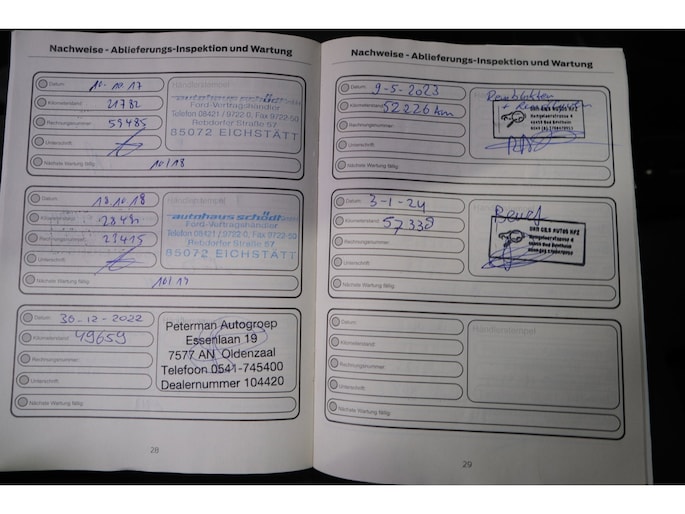 Nachweise - Ablieferungs-Inspektion und Wartung
Datum: 10.10.17
Händlerstempel
Kilometerstand: 21782
Rechnungsnummer: 59485
Unterschrift:
Nächste Wartung fällig: 10/18
Ford-Vertragshändler
Telefon 08421 / 9722-0, Fax 9722-50
Rebdorfer Straße 57
85072 EICHSTÄTT
Datum: 18.10.18
Kilometerstand:
Rechnungsnummer:
Unterschrift:
Nächste Wartung fällig: 10/19
autohaus schödl
Ford-Vertragshändler
Telefon 08421 / 9722-0, Fax 9722-50
Rebdorfer Straße 57
85072 EICHSTÄTT
Datum: 30-12-2022
Kilometerstand: 49659
Rechnungsnummer:
Unterschrift:
Nächste Wartung fällig:
Peterman Autogroep
Essenlaan 19
7577 AN Oldenzaal
Telefoon 0541-745400
Dealernummer 104420
28
Nachweise - Ablieferungs-Inspektion und Wartung
Datum: 9-5-2023
Kilometerstand: 52226 km
Rechnungsnummer:
Unterschrift:
Nächste Wartung fällig:
Datum: 3-1-24
Kilometerstand: 57338
Rechnungsnummer:
Unterschrift:
Nächste Wartung fällig:
Datum:
Händlerstempel
Kilometerstand:
Rechnungsnummer:
Unterschrift:
Nächste Wartung fällig:
29